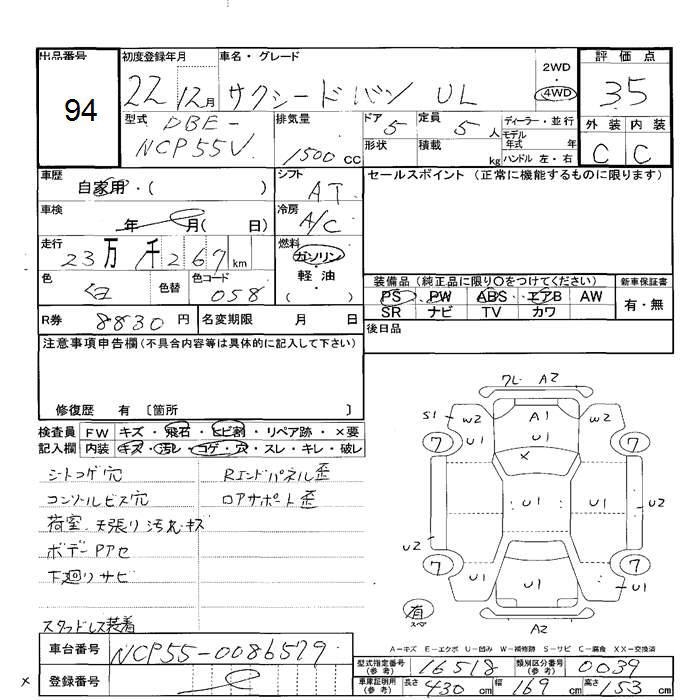 出品番号 初度登録年月 車名・グレード 評価点
94 22 12月 サクシードバン UL 2WD・4WD 3.5
型式 DBE-NCP55V 排気量 1500cc ドア 5 定員 5人 ディーラー・並行
形状 積載 kg モデル年式 年 ハンドル 左・右
外装 内装
C C
車歴 自家用・( ) シフト AT セールスポイント (正常に機能するものに限ります)
車検 年 月( 日) 冷房 A/C
走行 23万 千267km 燃料 ガソリン・軽油・( )
色 白 色替 色コード 058
装備品 (純正品に限り○をつけてください) 新車保証書
PS PW ABS エアB AW 有・無
SR ナビ TV カワ
R券 8830円 名変期限 月 日 後日品
注意事項申告欄 (不具合内容等は具体的に記入して下さい)
修復歴 有 [箇所 ]
検査員 FW キズ・飛石・ヒビ割・リペア跡・×要
記入欄 内装 キズ・汚レ・コゲ・穴・スレ・キレ・破レ
シートコゲ穴 Rエンドパネル歪
コンソールビス穴 ロアサポート歪
荷室、天張り汚れキズ
ボデーPアセ
下廻りサビ
スタッドレス装着
ワレ A2
S1 W2 A1 W2
U1 U1 U1
7 × 7
U1 U1 U2
U2
7 7
U1 U1 U1
有 スペ
A2
A-キズ E-エクボ U-凹み W-補修跡 S-サビ C-腐食 XX-交換済
車台番号 NCP55-0086579
登録番号
×
型式指定番号(参考) 16518 類別区分番号(参考) 0039
車庫証明用(参考) 長さ 430cm 幅 169cm 高さ 153cm